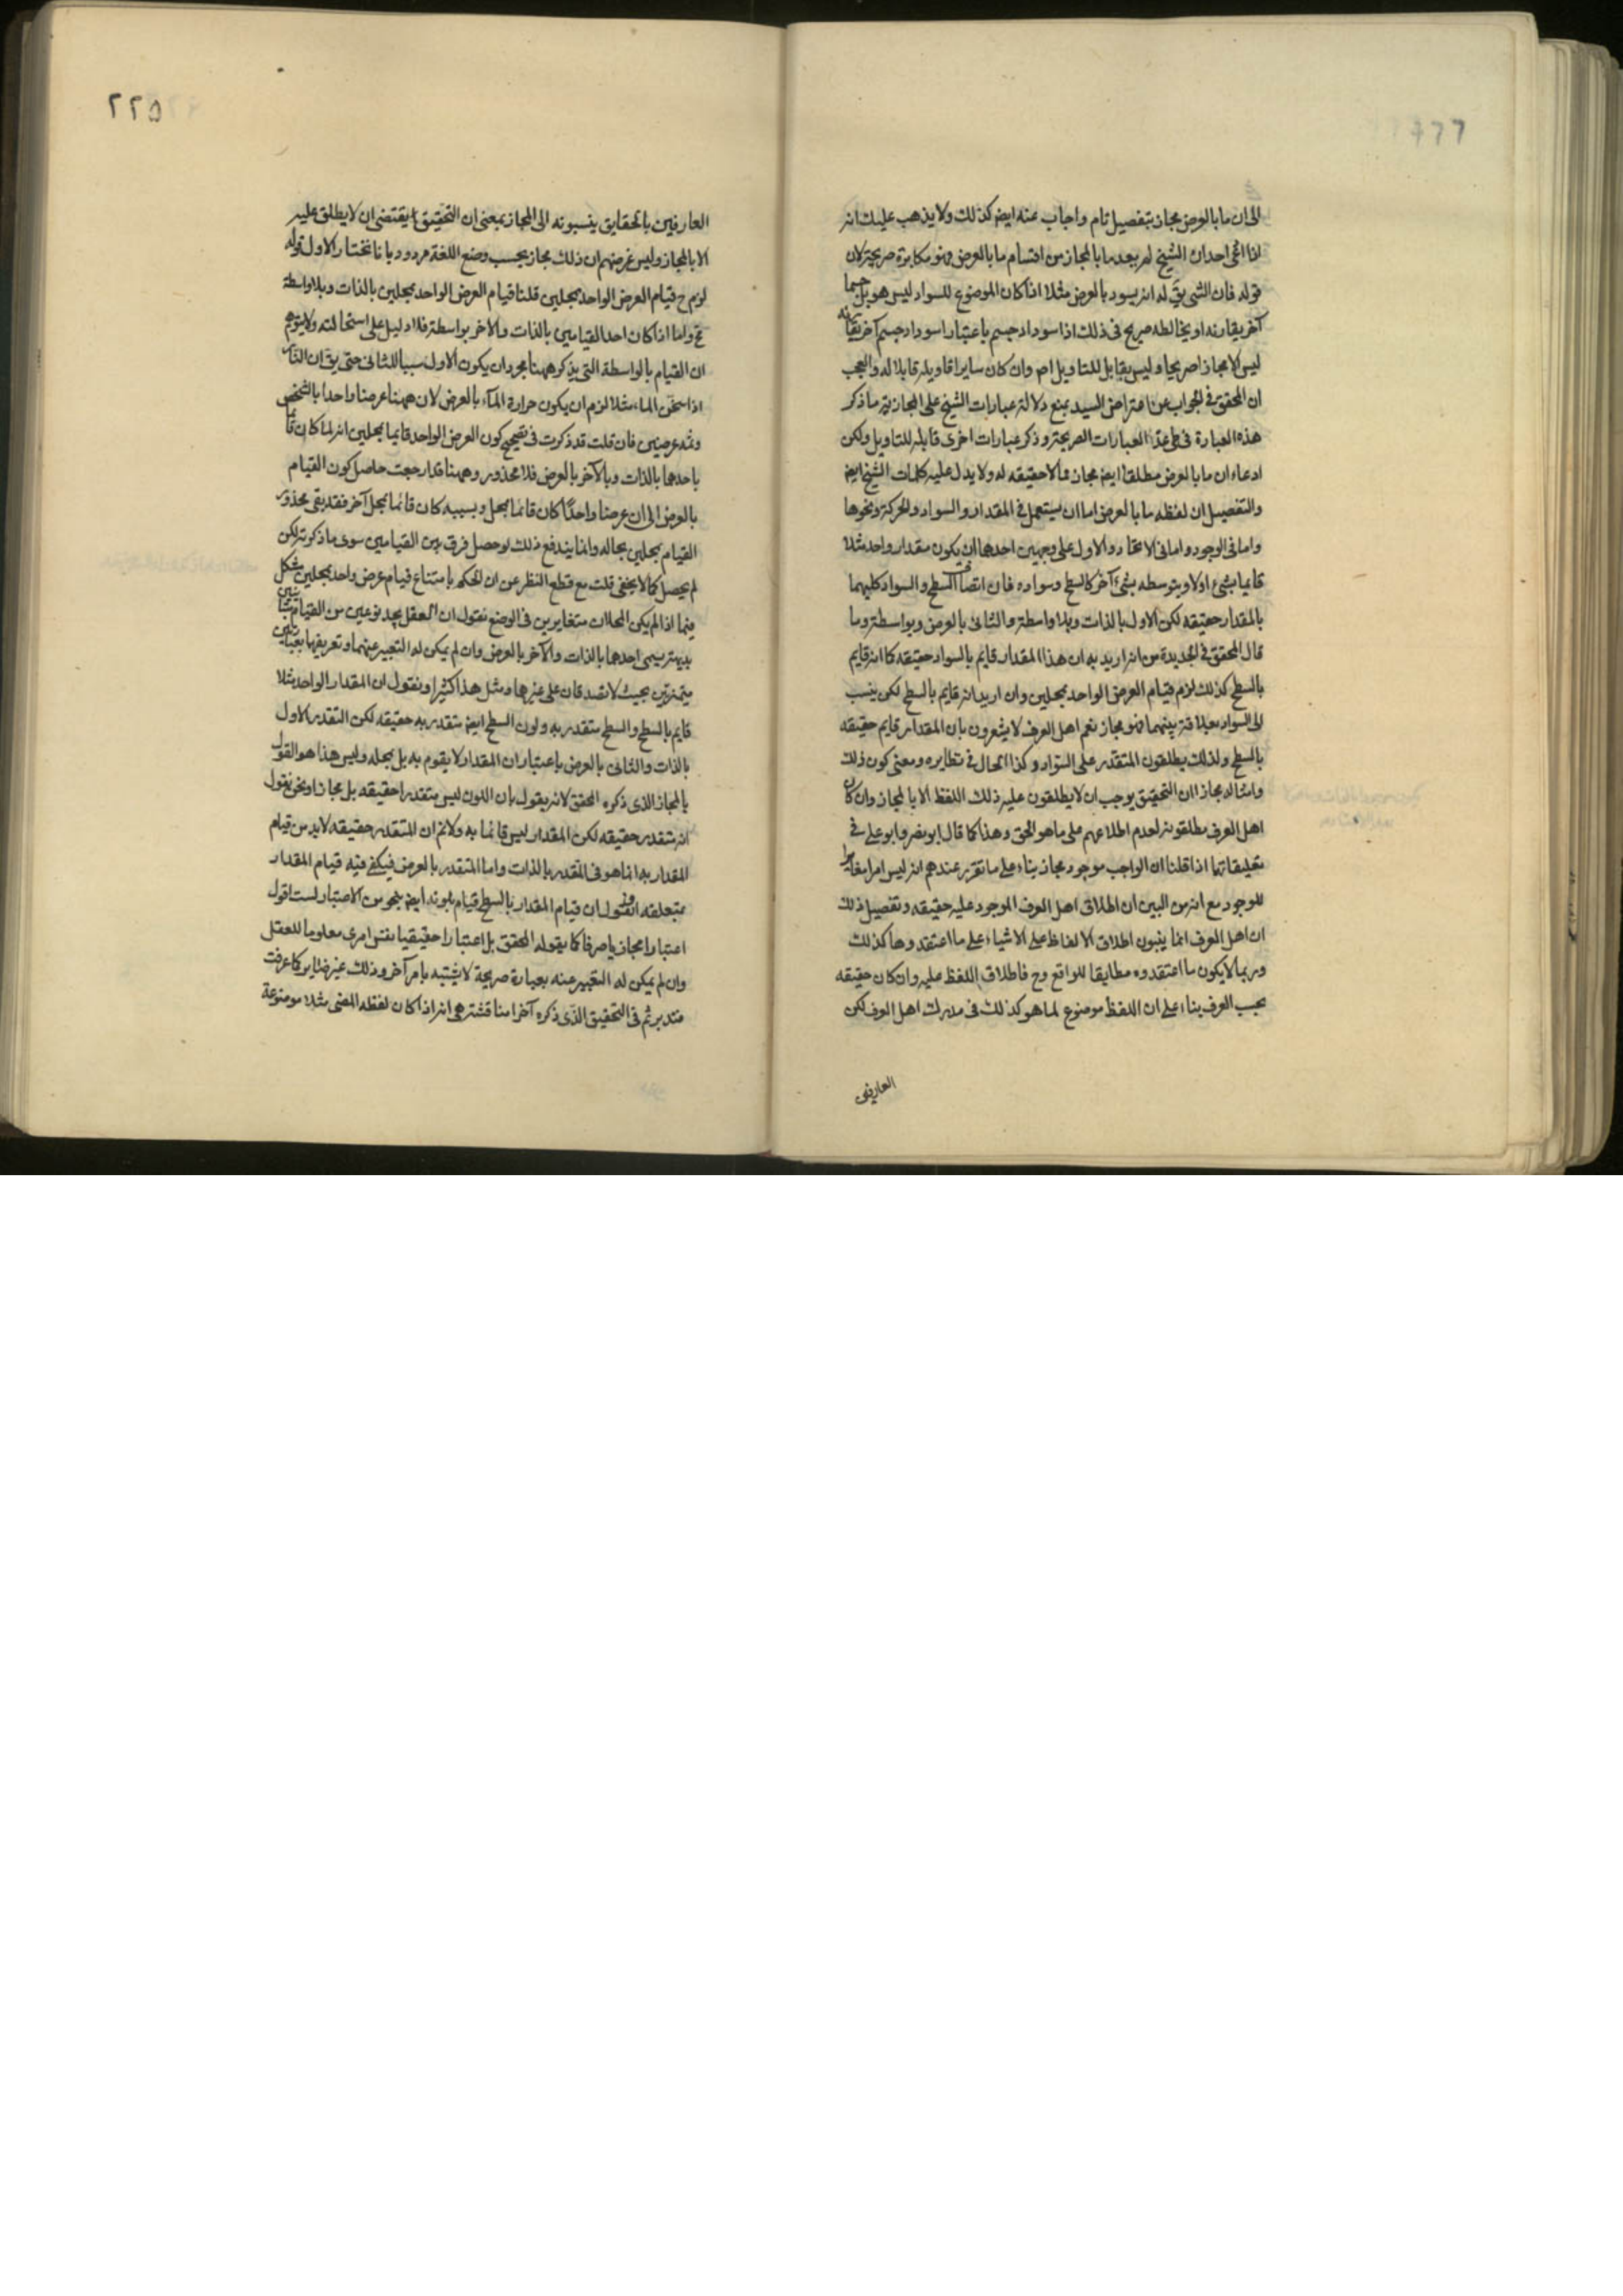 الى ان ما بالعرض مجاز بتفصيل تام واجاب عنه ايض كذلك ولا يذهب عليك انه
اذا ادعى احد ان الشيخ لم يعد ما بالمجاز من اقسام ما بالعرض فهو مكابرة صريحة لان
قوله فان الشى يق له انه يسود بالعرض مثلا اذا كان الموضوع للسواد ليس هو بل جسما
آخر يقارنه او يخالطه صريح فى ذلك اذ اسوداد جسم باعتبار اسوداد جسم آخر يقارنه
ليس الا مجازا صريحا وليس بقابل للتاويل اصلا وان كان ساير اقاويله قابلا له والعجب
ان المحقق فى الجواب عن اعتراض السيد بمنع دلالة عبارات الشيخ على المجازية ما ذكر
هذه العبارة العبارات الصريحة وذكر عبارات اخرى قابلة للتاويل ولكن
ادعاء ان ما بالعرض مطلقا ايض مجاز مما لا حقيقه له ولا يدل عليه كلمات الشيخ ايض
والتفصيل ان لفظه ما بالعرض اما ان يستعمل فى المقدار والسواد والحركة ونحوها
واما فى الوجود واما فى الاتحاد والاول على وجهين احدها ان يكون مقدار واحد مثلا
قايما بشىء اولا وبتوسطه بشىء آخر كالسطح وسواده فان اتصاف السطح والسواد كليهما
بالمقدار حقيقه لكن الاول بالذات وبلا واسطة والثانى بالعرض وبواسطة وما
قال المحقق فى الجديدة من انه اريد به ان هذا المقدار قايم بالسواد حقيقه كما انه قايم
بالسطح كذلك لزم قيام العرض الواحد بمحلين وان اريد انه قايم بالسطح لكن ينسب
الى السواد بعلاقة بينهما فهو مجاز نعم اهل العرف لا يشعرون بان المقدار قايم حقيقه
بالسطح ولذلك يطلقون المتقدر على السواد وكذا الحال فى نظايره ومعنى كون ذلك
وامثاله مجازا ان التحقيق يوجب ان لا يطلقون عليه ذلك اللفظ الا بالمجاز وان كان
اهل العرف يطلقونه لعدم اطلاعهم على ما هو الحق وهذا كما قال ابو نصر وابو على فى
تعليقاتهما اذا قلنا ان الواجب موجود مجاز بناء على ما تقرر عندهم انه ليس امرا مغايرا
للوجود مع انه من البين ان اطلاق اهل العرف الموجود عليه حقيقه وتفصيل ذلك
ان اهل العرف انما يبنون اطلاق الالفاظ على الاشياء على ما اعتقدوها كذلك
وربما لا يكون ما اعتقدوه مطابقا للواقع وح فاطلاق اللفظ عليه وان كان حقيقه
بحسب العرف بناء على ان اللفظ موضوع لما هو كذلك فى مدرك اهل العرف لكن
العارفين
٢٢٥
العارفين بالحقايق ينسبونه الى المجاز بمعنى ان التحقيق يقتضى ان لا يطلق عليه
الا بالمجاز وليس غرضهم ان ذلك مجاز بحسب وضع اللغة مردود بانا نختار الاول قوله
لزم ح قيام العرض الواحد بمحلين قلنا قيام العرض الواحد بمحلين بالذات وبلا واسطة
مح واما اذا كان احد القيامين بالذات والآخر بواسطة فلا دليل على استحالته ولا يتوهم
ان القيام بالواسطة التى يذكر ههنا مجرد ان يكون الاول سببا للثانى حتى يق ان النار
اذا سخن الماء مثلا لزم ان يكون حرارة الماء بالعرض لان ههنا عرضا واحدا بالشخص
وثمه عرضين فان قلت قد ذكرت فى تصحيح كون العرض الواحد قايما بمحلين انه لما كان قائما
باحدهما بالذات وبالآخر بالعرض فلا محذور وههنا قد ارجعت حاصل كون القيام
بالعرض الى ان عرضا واحدا كان قائما بمحل وبسببه كان قائما بمحل آخر فقد بقى محذور
القيام بمحلين بحاله وانما يندفع ذلك لو حصل فرق بين القيامين سوى ما ذكرته لكن
لم يحصل كما لا يخفى قلت مع قطع النظر عن ان الحكم بامتناع قيام عرض واحد بمحلين مشكل
فيما اذا لم يكن المحلان متغايرين فى الوضع نقول ان العقل يجد نوعين من القيام
بديهة يسمى احدهما بالذات والآخر بالعرض وان لم يمكن له التعبير عنهما وتعريفهما بعبارتين
متميزتين بحيث لا تصدقان على غيرهما ومثل هذا كثير او نقول ان المقدار الواحد مثلا
قايم بالسطح والسطح متقدر به ولون السطح ايض متقدر به حقيقه لكن التقدر الاول
بالذات والثانى بالعرض باعتبار ان المقدار لا يقوم به بل بمحله وليس هذا هو القول
بالمجاز الذى ذكره المحقق لانه يقول بان اللون ليس متقدرا حقيقه بل مجازا ونحن نقول
انه متقدر حقيقه لكن المقدار ليس قائما به ولانم ان المتقدر حقيقه لا بد من قيام
المقدار به انما هو فى المتقدر بالذات واما المتقدر بالعرض فيكفى فيه قيام المقدار
بمتعلقه او نقول ان قيام المقدار بالسطح قيام بلونه ايض بنحو من الاعتبار لست اقول
اعتبارا مجازيا صرفا كما يقوله المحقق بل اعتبارا حقيقيا نفس امرى معلوما للعقل
وان لم يمكن له التعبير عنه بعبارة صريحة لا يشتبه بامر آخر وذلك غير ضاير كما عرفت
فتدبر ثم فى التحقيق الذى ذكره آخرا مناقشة هى انه اذا كان لفظه المضى مثلا موضوعة